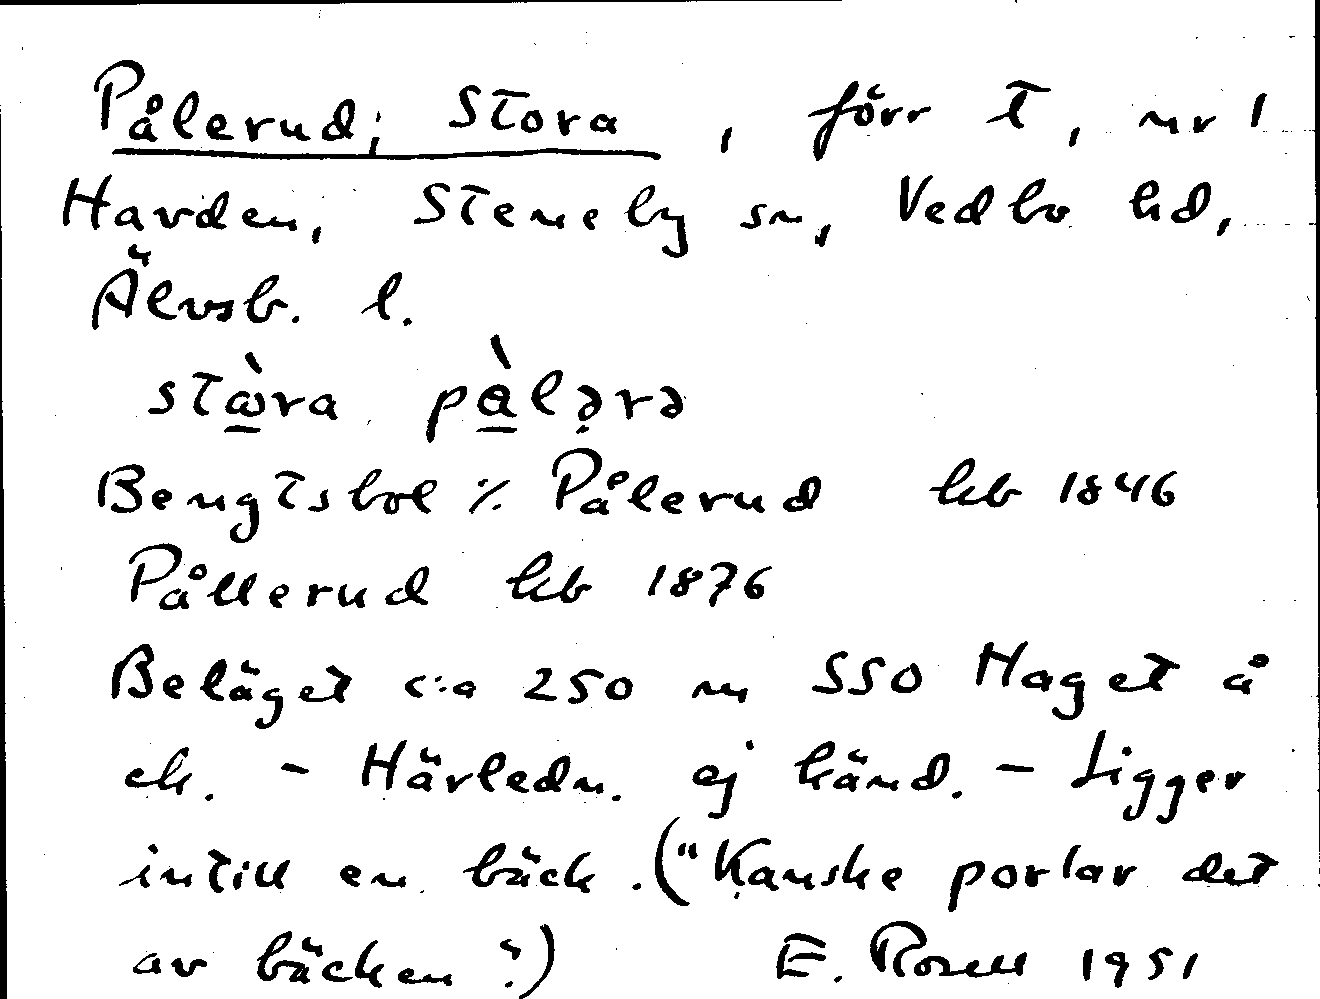 Pålerud; Stora, förr t, nr 1
Havden, Steneby sn, Vedbo hd,
Älvsb. l.
stὼra pàlə̣rə
Bengtsbol ⁒ Pålerud hb 1846
Pållerud hb 1876
Beläget c:a 250 m SSO Haget å
ek. - Härledn. ej känd. - Ligger
intill en bäck. ("Kanske porlar det
av bäcken".) E. Rosell 1951